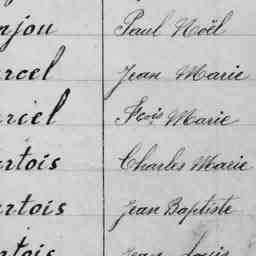 njou Paul Noël
rcel Jean Marie
rciel Fçois Marie
rtois Charles Marie
rtois Jean Baptiste
rtois Jean Louis